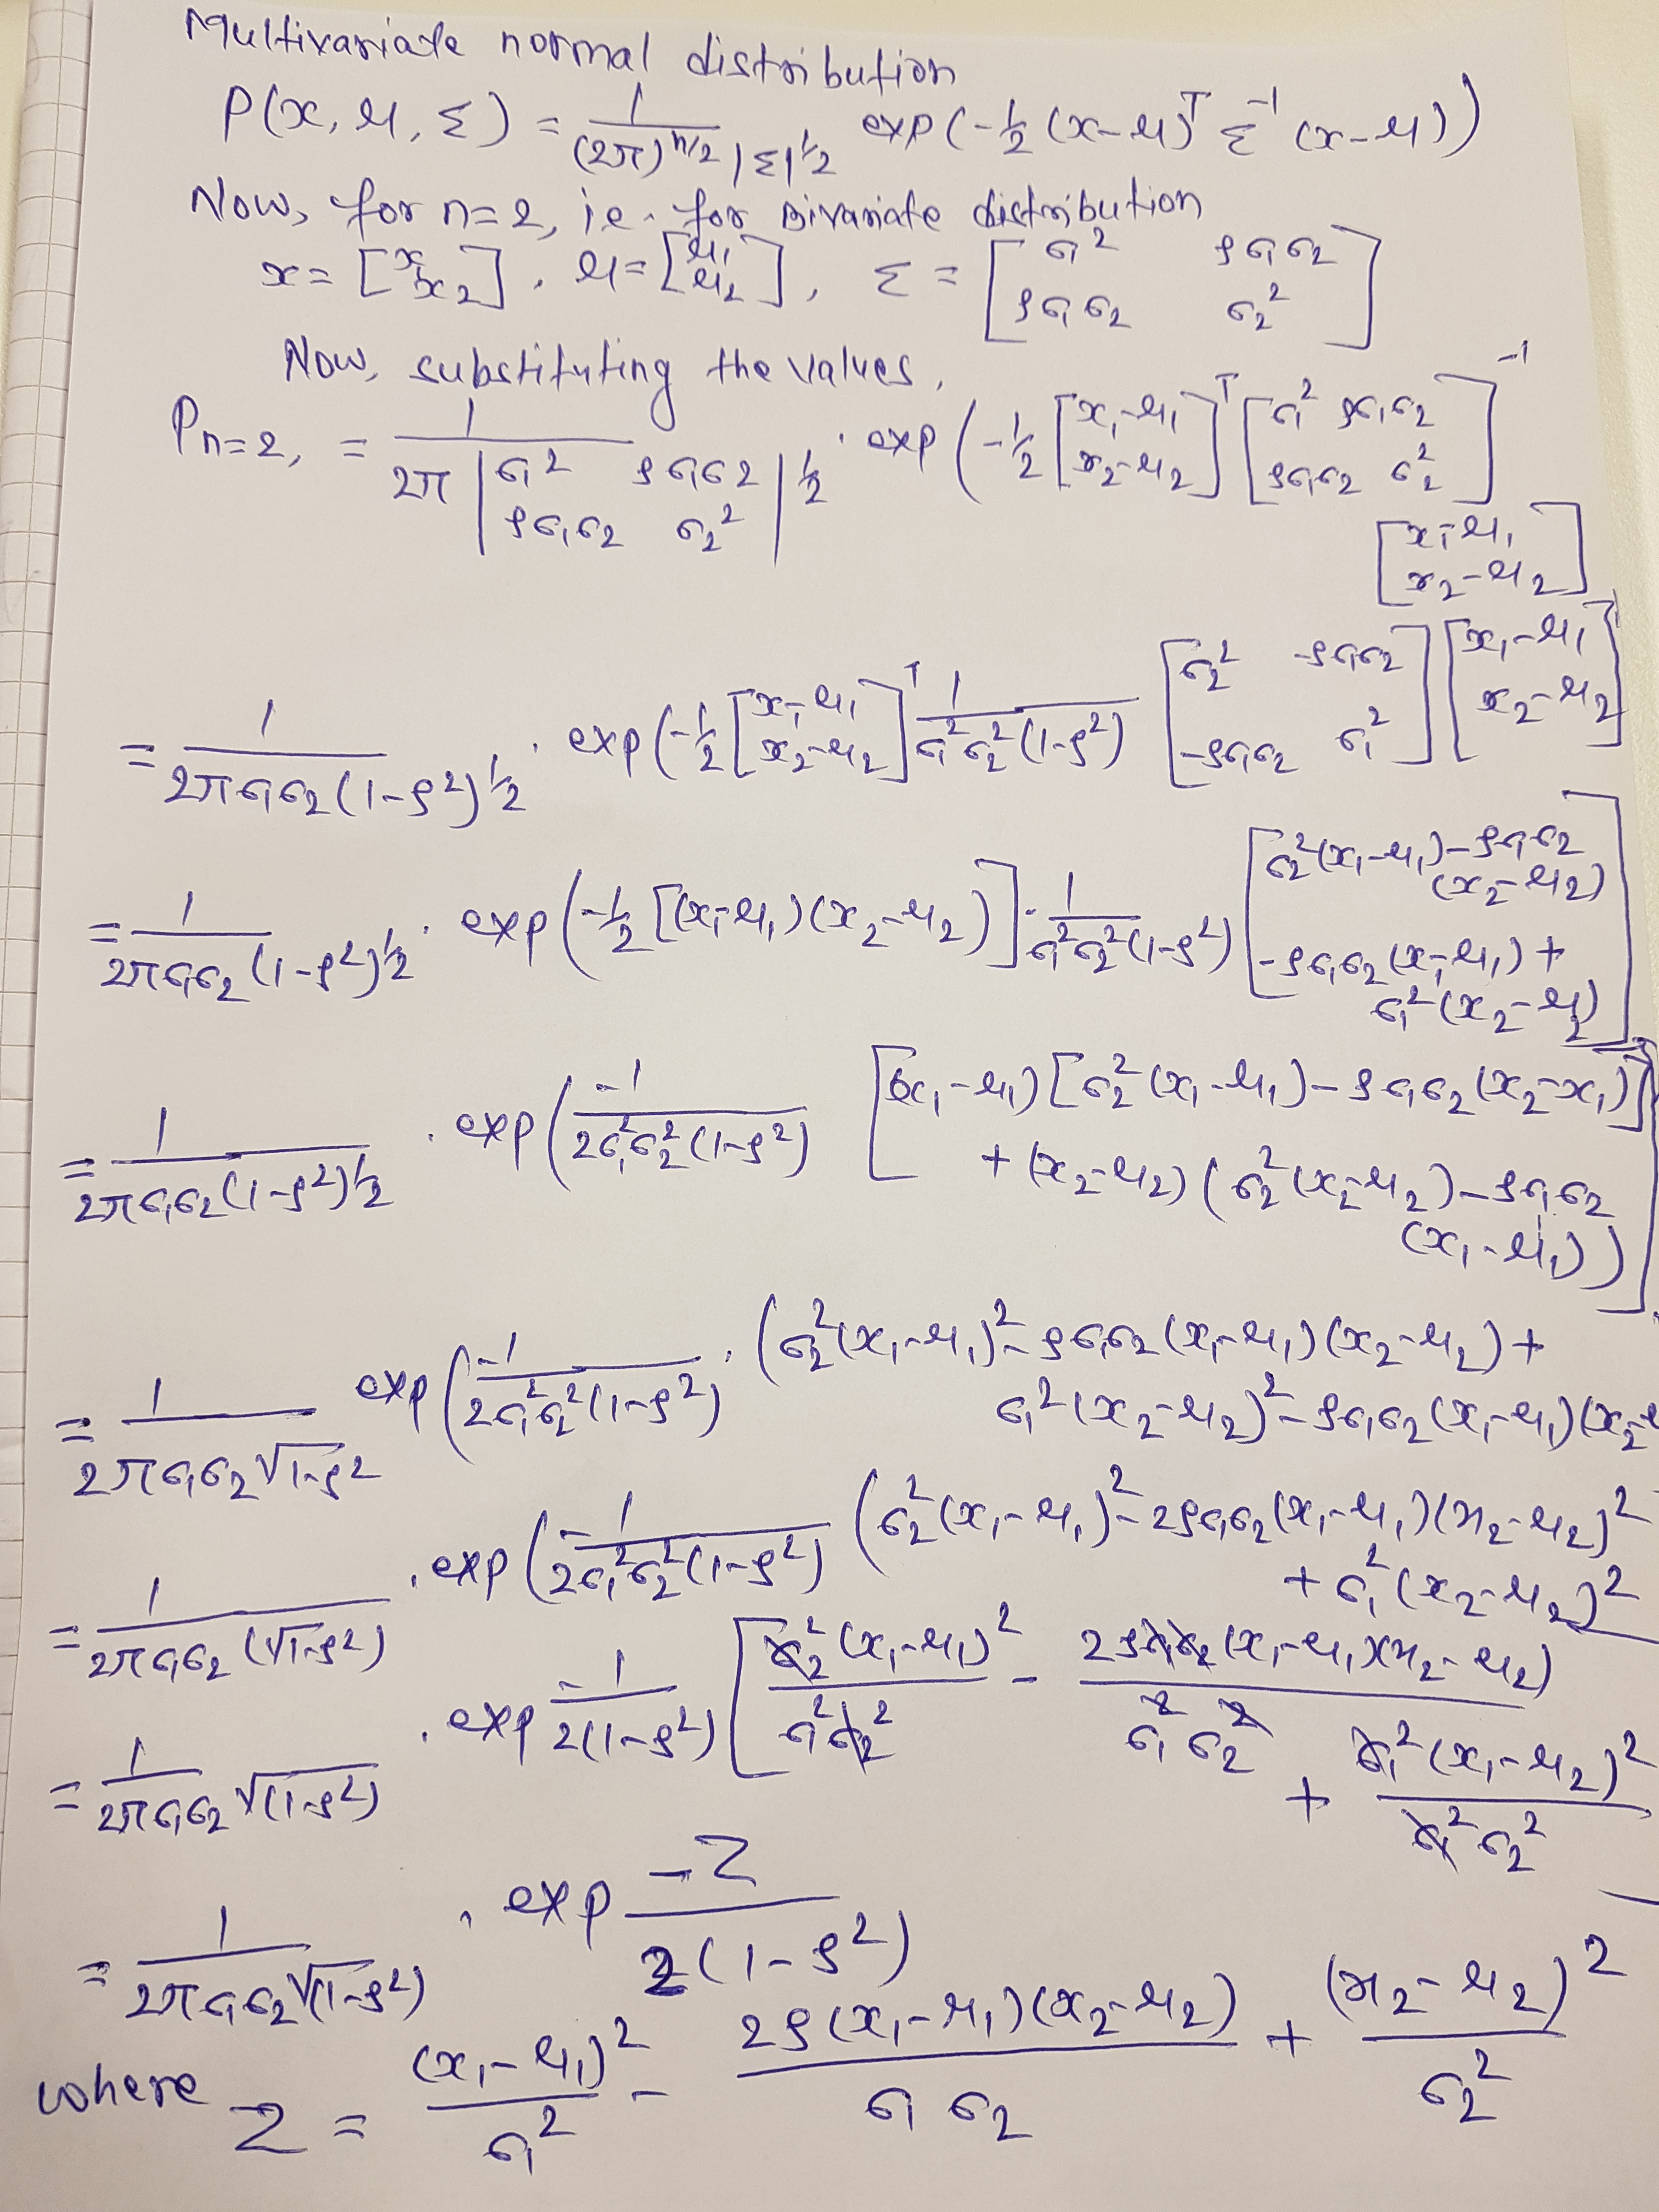 Multivariate normal distribution
P(x, μ, Σ) = 1/((2π)^(n/2) |Σ|^(1/2)) exp(-1/2 (x-μ)^T Σ^-1 (x-μ))
Now, for n=2, i.e. for Bivariate distribution
x = [x1 x2], μ = [μ1 μ2], Σ = [σ1^2 ρσ1σ2 ρσ1σ2 σ2^2]
Now, substituting the values,
P n=2, = 1/(2π |σ1^2 ρσ1σ2 ρσ1σ2 σ2^2|^(1/2)) . exp(-1/2 [x1-μ1 x2-μ2]^T [σ1^2 ρσ1σ2 ρσ1σ2 σ2^2]^-1
[x1-μ1 x2-μ2]
= 1/(2πσ1σ2(1-ρ^2)^(1/2)) . exp(-1/2 [x1-μ1 x2-μ2]^T 1/(σ1^2σ2^2(1-ρ^2)) [σ2^2 -ρσ1σ2 -ρσ1σ2 σ1^2] [x1-μ1 x2-μ2]
= 1/(2πσ1σ2(1-ρ^2)^(1/2)) . exp(-1/2 [(x1-μ1)(x2-μ2)] . 1/(σ1^2σ2^2(1-ρ^2)) [σ2^2(x1-μ1)-ρσ1σ2(x2-μ2) -ρσ1σ2(x1-μ1)+σ1^2(x2-μ2)]
= 1/(2πσ1σ2(1-ρ^2)^(1/2)) . exp(-1/(2σ1^2σ2^2(1-ρ^2)) [(x1-μ1)[σ2^2(x1-μ1)-ρσ1σ2(x2-x1)]
+(x2-μ2)(σ2^2(x2-μ2)-ρσ1σ2
(x1-μ1))]
= 1/(2πσ1σ2√1-ρ^2) exp(-1/(2σ1^2σ2^2(1-ρ^2)) . (σ2^2(x1-μ1)^2-ρσ1σ2(x1-μ1)(x2-μ2)+
σ1^2(x2-μ2)^2-ρσ1σ2(x1-μ1)(x2-μ
= 1/(2πσ1σ2(√1-ρ^2)) . exp(-1/(2σ1^2σ2^2(1-ρ^2)) (σ2^2(x1-μ1)^2-2ρσ1σ2(x1-μ1)(x2-μ2)^2
+σ1^2(x2-μ2)^2
= 1/(2πσ1σ2√(1-ρ^2)) . exp -1/(2(1-ρ^2)) [σ2^2(x1-μ1)^2/(σ1^2σ2^2) - 2ρσ1σ2(x1-μ1)(x2-μ2)/(σ1^2σ2^2)
+ σ1^2(x1-μ2)^2/(σ1^2σ2^2)
= 1/(2πσ1σ2√(1-ρ^2)) . exp -Z/(2(1-ρ^2))
where Z = (x1-μ1)^2/σ1^2 - 2ρ(x1-μ1)(x2-μ2)/(σ1σ2) + (x2-μ2)^2/σ2^2